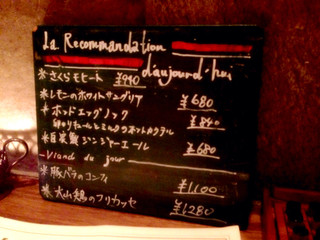 La Recommandation
d'aujourd'hui
*さくらモヒート ¥940
*レモンのホワイトサングリア ¥680
*ホッドエッグノック ¥840
*自家製ジンジャーエール ¥680
Viand du jour
*豚バラのコンフィ ¥1100
*大山鶏のフリカッセ ¥1280